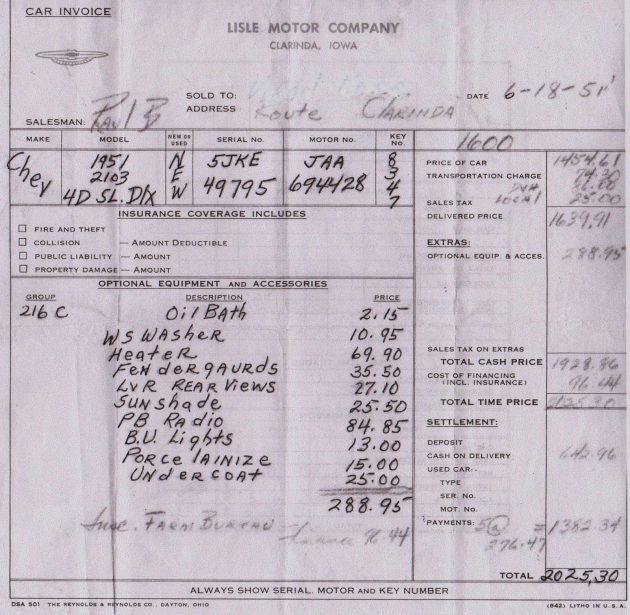 CAR INVOICE
LISLE MOTOR COMPANY
CLARINDA, IOWA
SOLD TO:
DATE 6-18-51
ADDRESS Route Clarinda
SALESMAN: Paul B
MAKE MODEL NEW OR USED SERIAL No. MOTOR No. KEY No.
Chev 1951 2103 4D SL. Dlx NEW 5JKE 49795 JAA 694428 8347
1600
PRICE OF CAR 1454.61
TRANSPORTATION CHARGE 74.30
SALES TAX Local 25.00
DELIVERED PRICE 1639.91
INSURANCE COVERAGE INCLUDES
FIRE AND THEFT
COLLISION — AMOUNT DEDUCTIBLE
PUBLIC LIABILITY — AMOUNT
PROPERTY DAMAGE — AMOUNT
EXTRAS:
OPTIONAL EQUIP. & ACCES. 288.95
OPTIONAL EQUIPMENT AND ACCESSORIES
GROUP DESCRIPTION PRICE
216 C Oil Bath 2.15
WS WASHER 10.95
Heater 69.90
FENdergaurds 35.50
LvR REAR Views 27.10
Sunshade 25.50
PB Radio 84.85
B.U. Lights 13.00
Porcelainize 15.00
UNDERCOAT 25.00
288.95
Insc. FARM BUREAU - finance 96.44
SALES TAX ON EXTRAS
TOTAL CASH PRICE 1928.86
COST OF FINANCING
(INCL. INSURANCE) 96.44
TOTAL TIME PRICE 2025.30
SETTLEMENT:
DEPOSIT
CASH ON DELIVERY 642.96
USED CAR:-
TYPE
SER. No.
MOT. No.
PAYMENTS: 5@ 276.47 = 1382.34
TOTAL 2025.30
ALWAYS SHOW SERIAL, MOTOR AND KEY NUMBER
DSA 501 THE REYNOLDS & REYNOLDS CO., DAYTON, OHIO
(842) LITHO IN U.S.A.